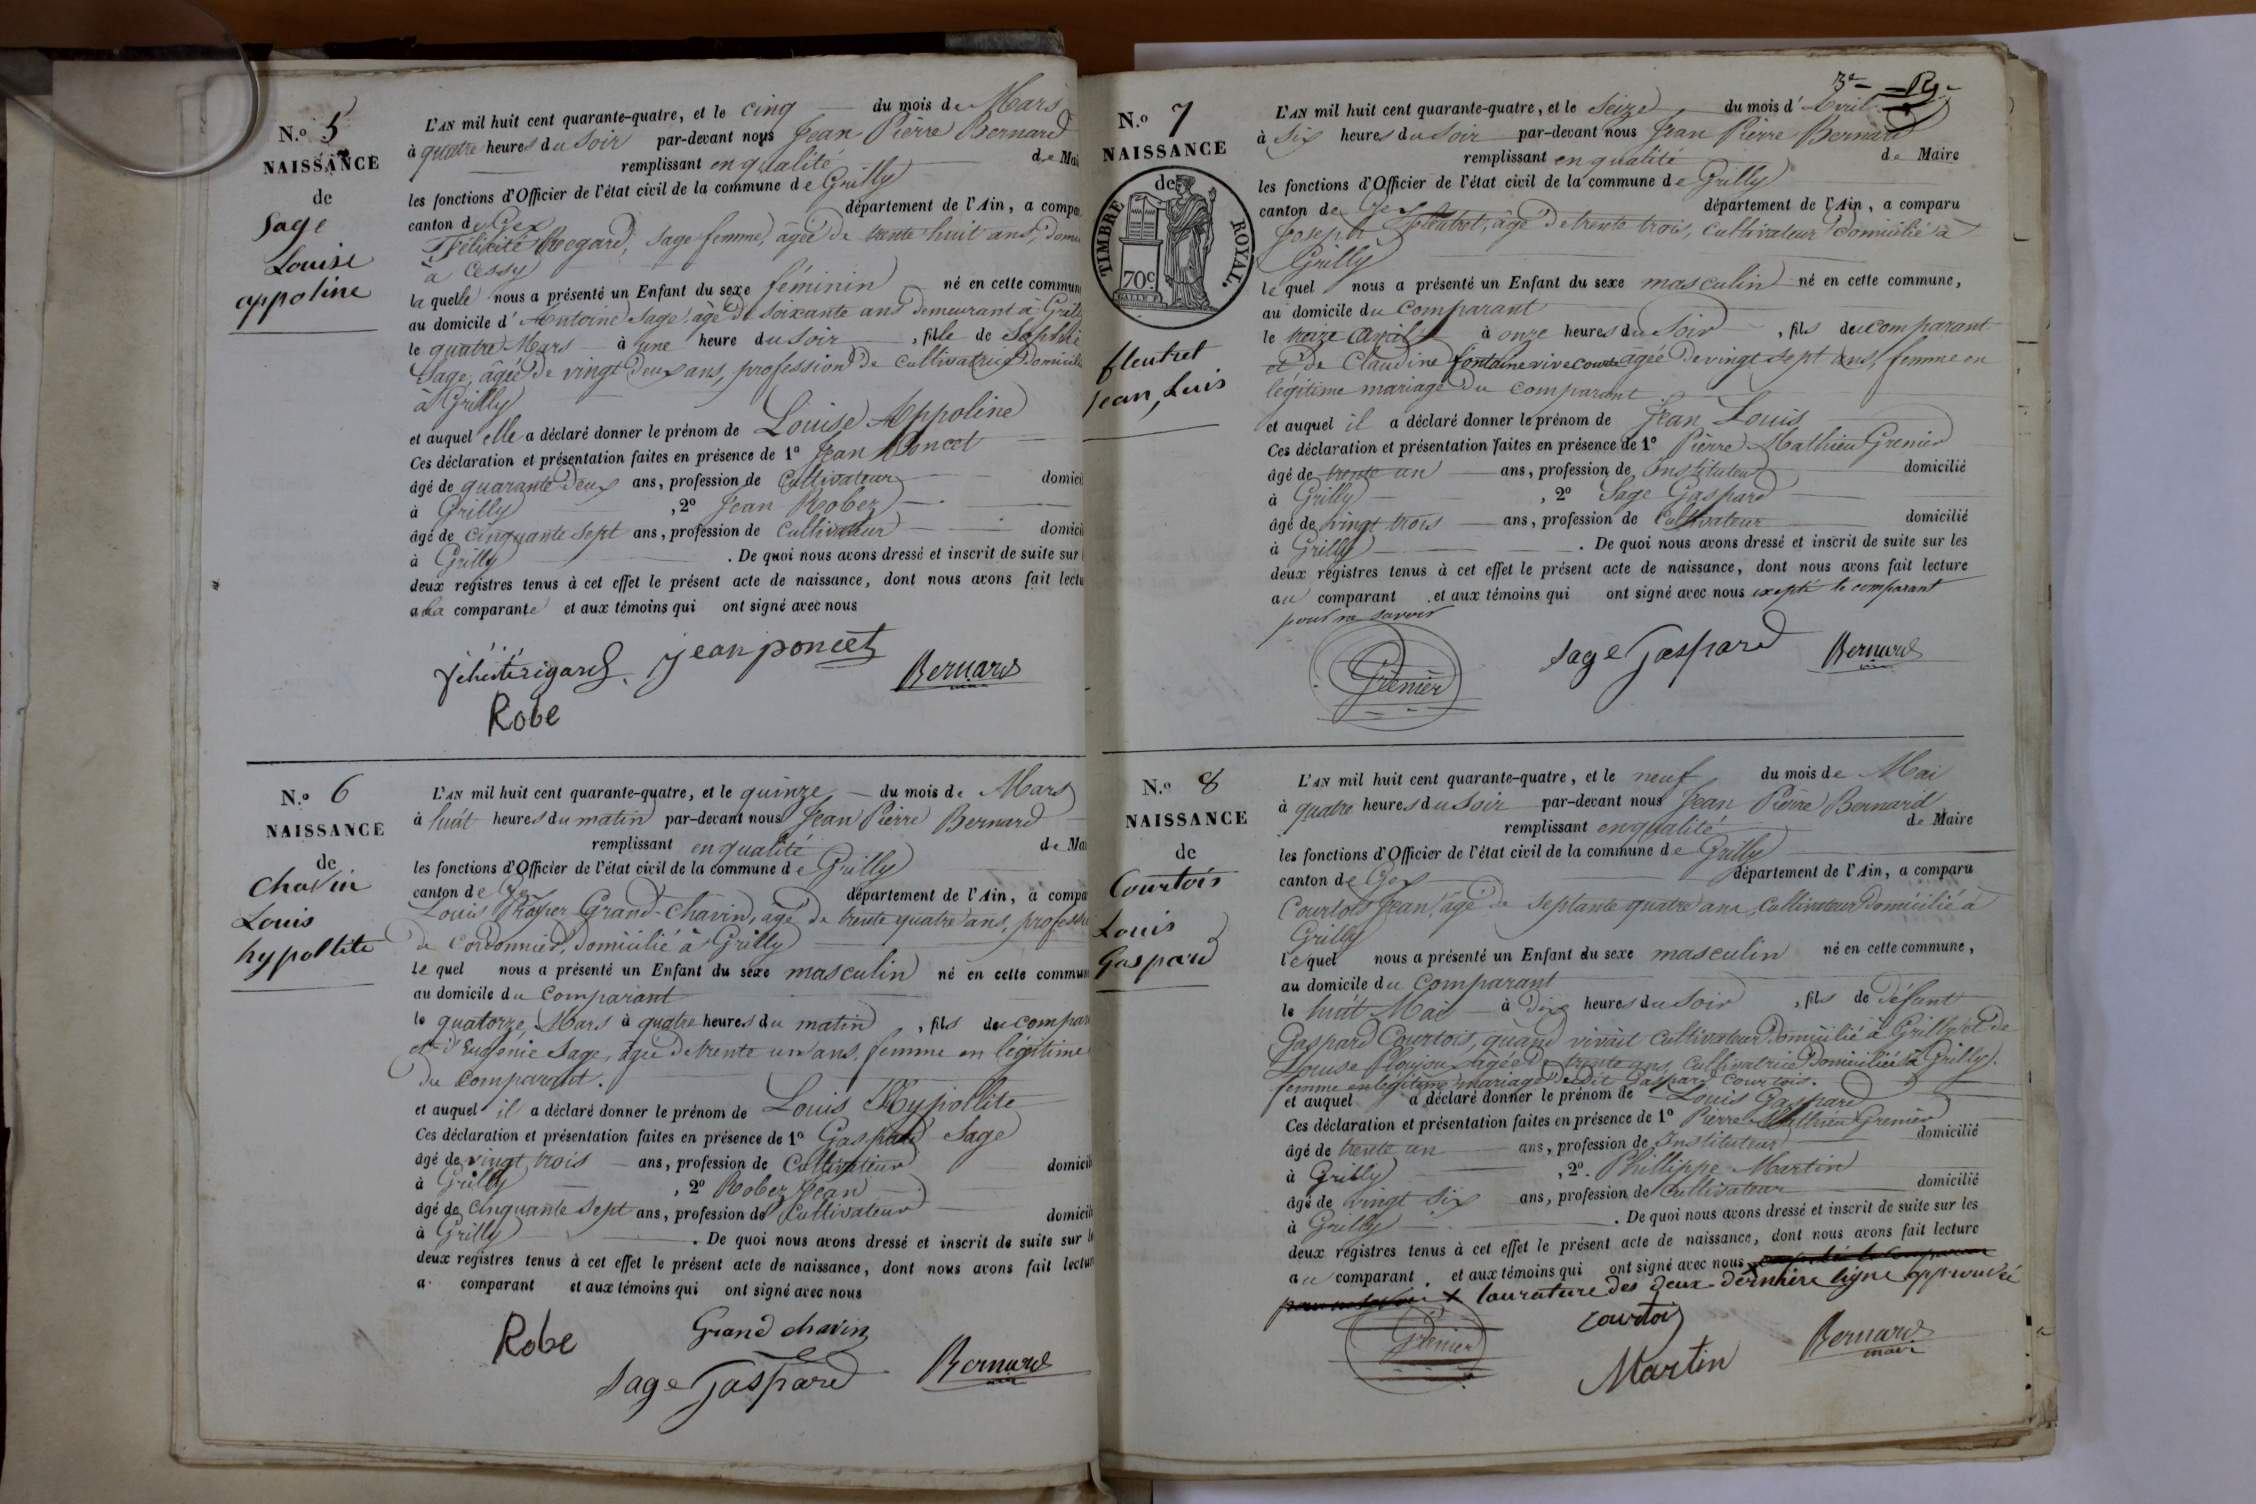 N.o 5
NAISSANCE
de
Sage
Louise
appoline
L'AN mil huit cent quarante-quatre, et le cinq du mois de Mars
à quatre heures du soir par-devant nous Jean Pierre Bernard
remplissant en qualité de Mai
les fonctions d'Officier de l'état civil de la commune de Grilly
canton de Gex département de l'Ain, a compa
Félicité Regard, sage femme, âgée de trente huit ans, domi
à Cessy
la quelle nous a présenté un Enfant du sexe féminin né en cette commun
au domicile d'Antoine Sage âgé de soixante ans demeurant à Grill
le quatre Mars à une heure du soir, fille de Sophie
Sage, âgée de vingt deux ans, profession de Cultivatrice domicili
à Grilly
et auquel elle a déclaré donner le prénom de Louise Appoline
Ces déclaration et présentation faites en présence de 1º Jean Poncet
âgé de quarante deux ans, profession de Cultivateur domici
à Grilly, 2º Jean Robez
âgé de cinquante sept ans, profession de Cultivateur domici
à Grilly. De quoi nous avons dressé et inscrit de suite sur
deux registres tenus à cet effet le présent acte de naissance, dont nous avons fait lectu
a la comparante et aux témoins qui ont signé avec nous
jean poncet
Bernard
Robe
N.o 6
NAISSANCE
de
chavin
Louis
hypollite
L'AN mil huit cent quarante-quatre, et le quinze du mois de Mars
à huit heures du matin par-devant nous Jean Pierre Bernard
remplissant en qualité de Mai
les fonctions d'Officier de l'état civil de la commune de Grilly
canton de Gex département de l'Ain, a compa
Louis Prosper Grand-Chavin, âgé de trente quatre ans, professi
de Cordonnier, domicilié à Grilly
le quel nous a présenté un Enfant du sexe masculin né en cette commun
au domicile du comparant
le quatorze Mars à quatre heures du matin, fils du compar
et d'Eugénie Sage, âgée de trente un ans, femme en légitime
du comparant.
et auquel il a déclaré donner le prénom de Louis Hypollite
Ces déclaration et présentation faites en présence de 1º Gaspard Sage
âgé de vingt trois ans, profession de Cultivateur domicili
à Grilly, 2º Robez Jean
âgé de cinquante sept ans, profession de Cultivateur domicili
à Grilly. De quoi nous avons dressé et inscrit de suite sur l
deux registres tenus à cet effet le présent acte de naissance, dont nous avons fait lectur
a comparant et aux témoins qui ont signé avec nous
Robe
Grand chavin
Sage Gaspard
Bernard
3e
N.o 7
NAISSANCE
de
TIMBRE ROYAL.
70c
fleutret
jean Luis
L'AN mil huit cent quarante-quatre, et le Seize du mois d'Avril
à six heures du soir par-devant nous Jean Pierre Bernard
remplissant en qualité de Maire
les fonctions d'Officier de l'état civil de la commune de Grilly
canton de Gex département de l'Ain, a comparu
Joseph fleutret, âgé de trente trois, cultivateur domicilié à
Grilly
le quel nous a présenté un Enfant du sexe masculin né en cette commune,
au domicile du comparant
le treize Avril à onze heures du soir, fils du comparant
et de Claudine fontaine vive courte agée de vingt sept ans, femme en
légitime mariage du comparant
et auquel il a déclaré donner le prénom de Jean Louis
Ces déclaration et présentation faites en présence de 1º Pierre Mathieu Grenier
âgé de trente un ans, profession de Instituteur domicilié
à Grilly, 2º Sage Gaspard
âgé de vingt trois ans, profession de Cultivateur domicilié
à Grilly. De quoi nous avons dressé et inscrit de suite sur les
deux registres tenus à cet effet le présent acte de naissance, dont nous avons fait lecture
au comparant et aux témoins qui ont signé avec nous excepté le comparant
pour ne savoir
Grenier
Sage Gaspard
Bernard
N.o 8
NAISSANCE
de
Courtois
Louis
Gaspard
L'AN mil huit cent quarante-quatre, et le neuf du mois de Mai
à quatre heures du soir par-devant nous Jean Pierre Bernard
remplissant en qualité de Maire
les fonctions d'Officier de l'état civil de la commune de Grilly
canton de Gex département de l'Ain, a comparu
Courtois Jean, âgé de septante quatre ans, Cultivateur domicilié à
Grilly
le quel nous a présenté un Enfant du sexe masculin né en cette commune,
au domicile du comparant
le huit Mai à dix heures du soir, fils de défunt
Gaspard Courtois, quand vivait cultivateur domicilié à Grilly et de
Louise âgée de trente ans, cultivatrice domiciliée à Grilly.
femme en légitime mariage de dit Gaspard Courtois.
et auquel a déclaré donner le prénom de Louis Gaspard
Ces déclaration et présentation faites en présence de 1º Pierre Mathieu Grenier
âgé de trente un ans, profession de Instituteur domicilié
à Grilly, 2º. Phillippe Martin
âgé de vingt six ans, profession de cultivateur domicilié
à Grilly. De quoi nous avons dressé et inscrit de suite sur les
deux registres tenus à cet effet le présent acte de naissance, dont nous avons fait lecture
au comparant et aux témoins qui ont signé avec nous
des deux dernière ligne approuvée
Grenier
courtois
Martin
Bernard
maire